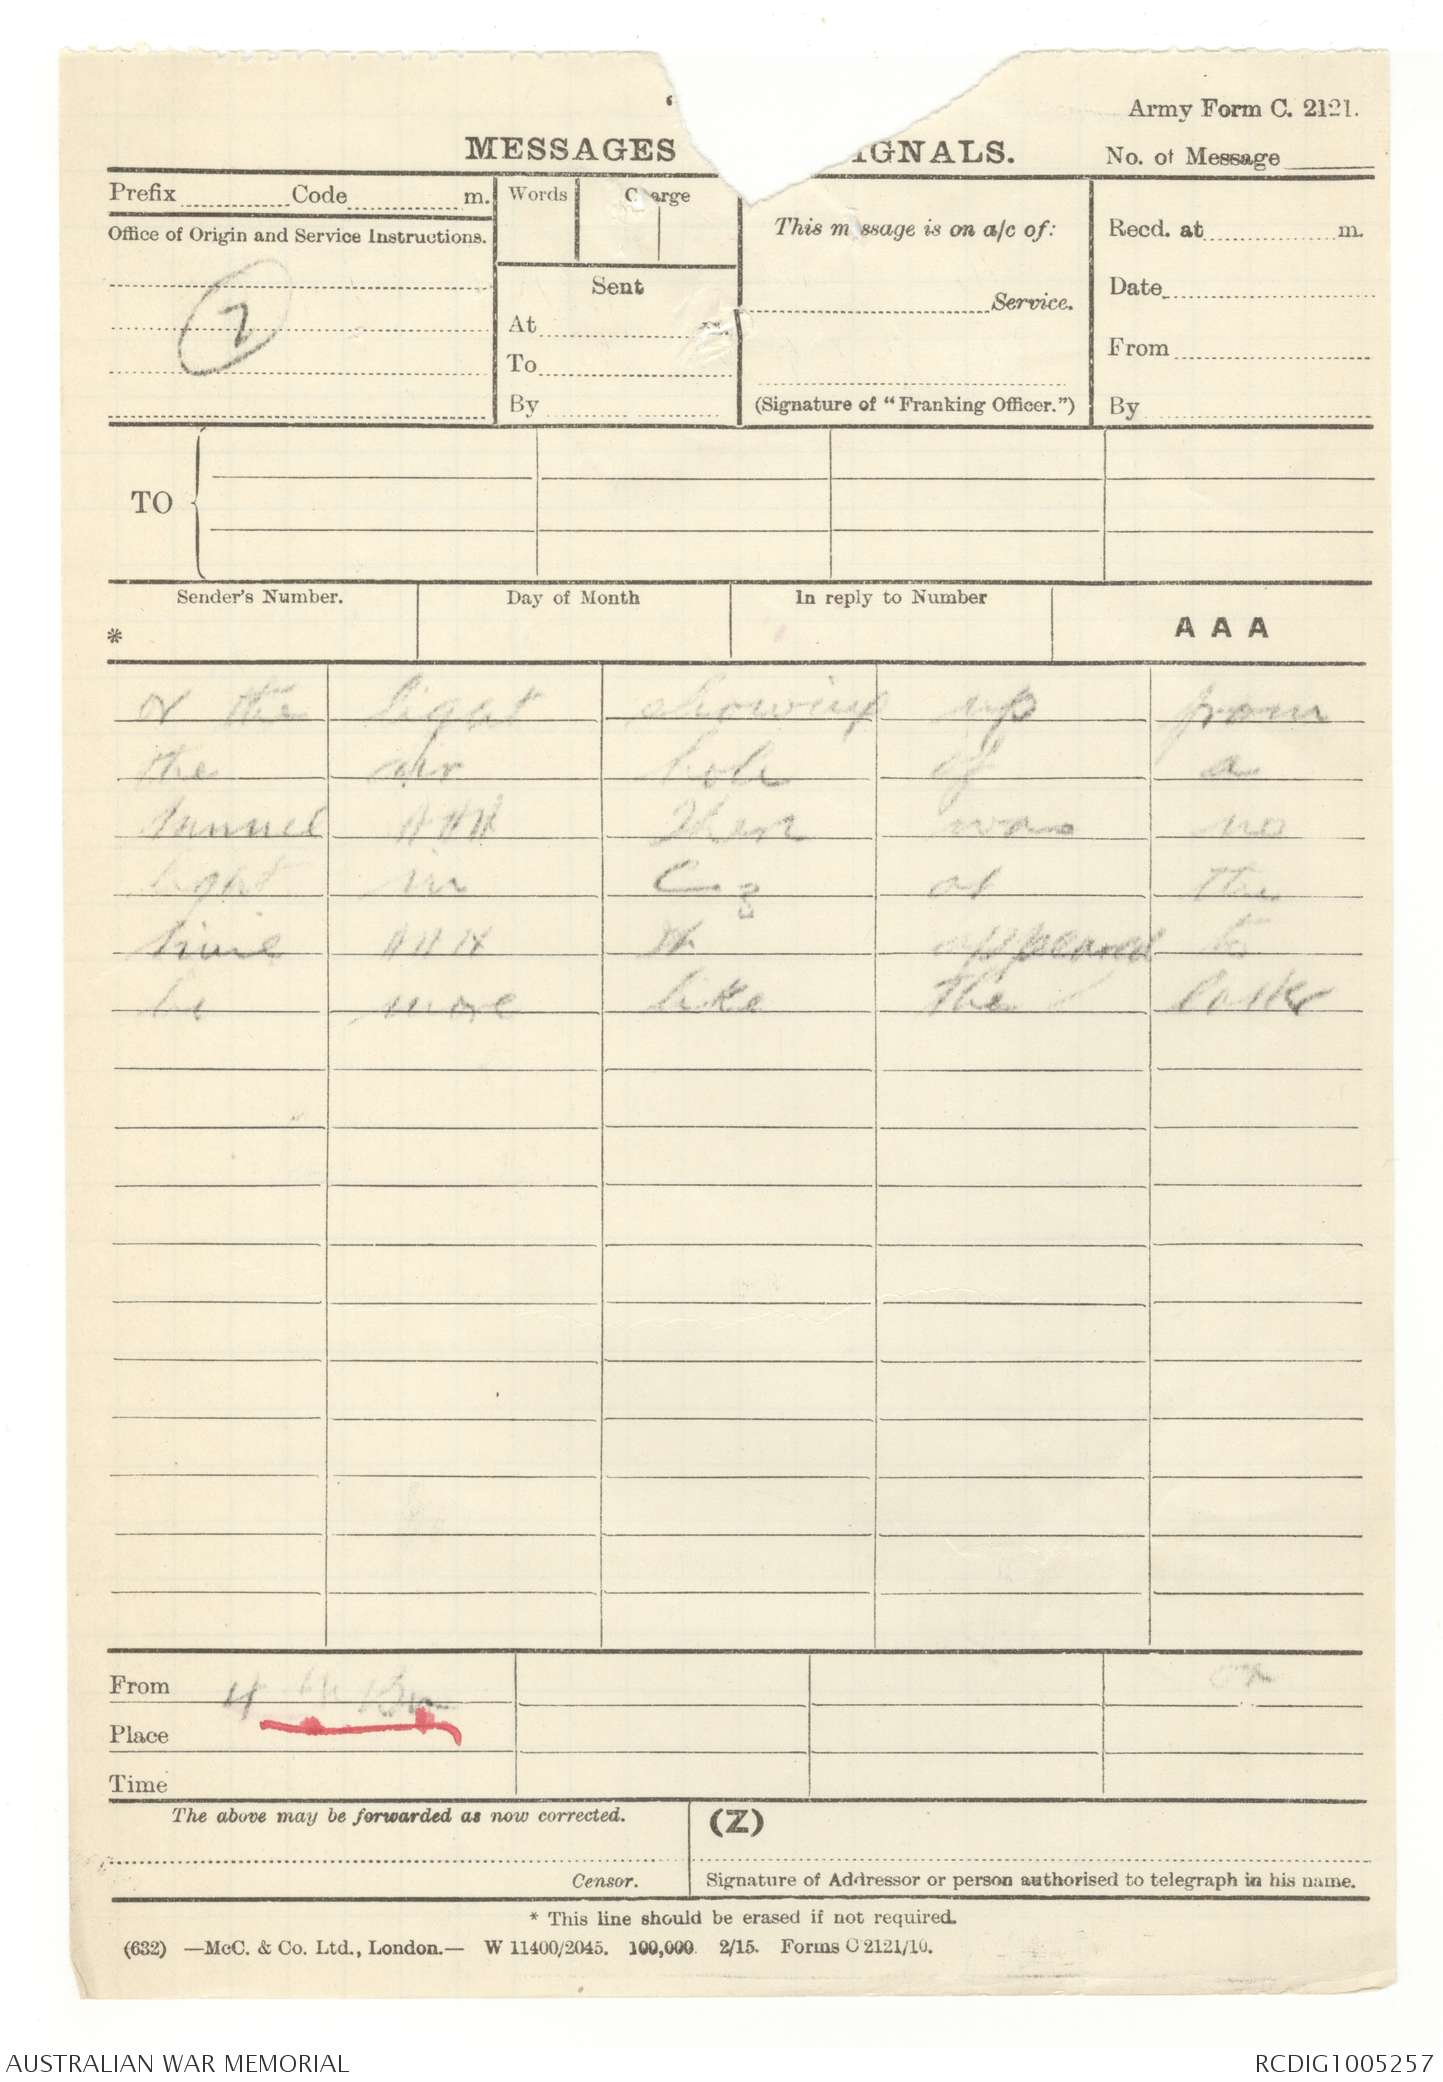 Army Form C. 2121.
MESSAGES IGNALS.
No. of Message
Prefix Code m.
Words Charge
This message is on a/c of:
Recd. at m.
Office of Origin and Service Instructions.
Sent
Date
2
Service.
At m.
From
To
By
(Signature of "Franking Officer.")
By
TO
Sender's Number.
Day of Month
In reply to Number
* AAA
or the light showing up from
the air hole of a
tunnel AAA There was no
light in C3 at the
time AAA It appeared to
be more like the latter
From 4
Place
Time
The above may be forwarded as now corrected.
(Z)
Censor.
Signature of Addressor or person authorised to telegraph in his name.
* This line should be erased if not required.
(632) —McC. & Co. Ltd., London.— W 11400/2045. 100,000. 2/15. Forms C 2121/10.
AUSTRALIAN WAR MEMORIAL
RCDIG1005257